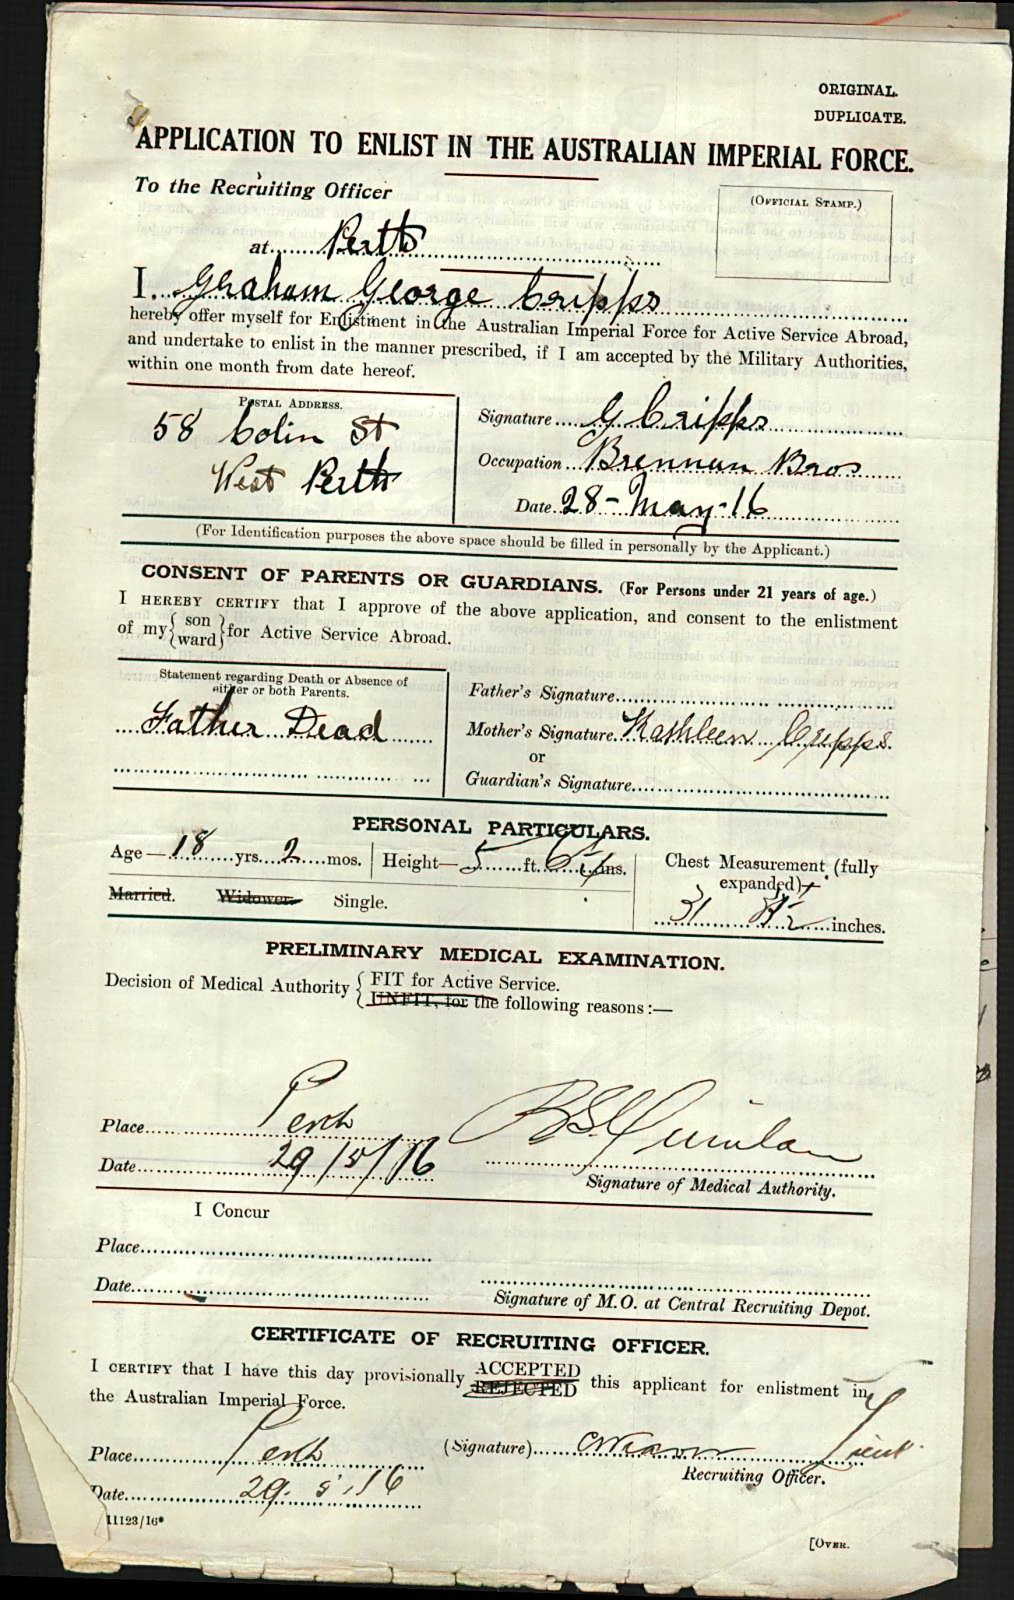 ORIGINAL.
DUPLICATE.
APPLICATION TO ENLIST IN THE AUSTRALIAN IMPERIAL FORCE.
To the Recruiting Officer
(OFFICIAL STAMP.)
at Perth
I. Graham George Cripps
hereby offer myself for Enlistment in the Australian Imperial Force for Active Service Abroad,
and undertake to enlist in the manner prescribed, if I am accepted by the Military Authorities,
within one month from date hereof.
POSTAL ADDRESS.
58 Colin St
West Perth
Signature G Cripps
Occupation Brennan Bros
Date 28-May-16
(For Identification purposes the above space should be filled in personally by the Applicant.)
CONSENT OF PARENTS OR GUARDIANS. (For Persons under 21 years of age.)
I HEREBY CERTIFY that I approve of the above application, and consent to the enlistment
of my {son ward} for Active Service Abroad.
Statement regarding Death or Absence of
either or both Parents.
Father Dead
Father's Signature
Mother's Signature Kathleen Cripps.
or
Guardian's Signature
PERSONAL PARTICULARS.
Age — 18 yrs. 2 mos.
Height— 5 ft. ins.
Chest Measurement (fully
expanded)
31 inches.
Married. Widower. Single.
PRELIMINARY MEDICAL EXAMINATION.
Decision of Medical Authority { FIT for Active Service.
UNFIT, for the following reasons:—
Place Perth
Date 29/5/16
Signature of Medical Authority.
I Concur
Place
Date
Signature of M.O. at Central Recruiting Depot.
CERTIFICATE OF RECRUITING OFFICER.
I CERTIFY that I have this day provisionally ACCEPTED REJECTED this applicant for enlistment in
the Australian Imperial Force.
Place Perth
(Signature) Lieut.
Recruiting Officer.
Date 29.5.16
11123/16*
[OVER.